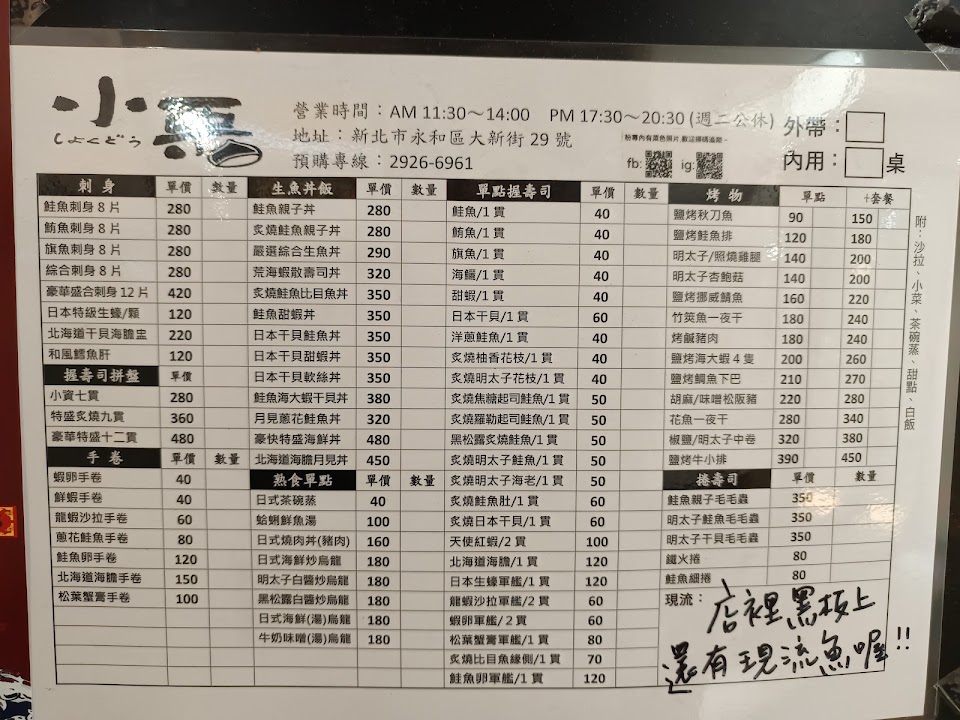 小
しょくどう
營業時間：AM 11:30～14:00 PM 17:30～20:30 (週二公休)
地址：新北市永和區大新街 29 號
預購專線：2926-6961
粉專內有菜色照片,歡迎掃碼追蹤~
fb: ig:
外帶：
內用： 桌
刺身 單價 數量
鮭魚刺身 8 片 280
鮪魚刺身 8 片 280
旗魚刺身 8 片 280
綜合刺身 8 片 280
豪華盛合刺身 12 片 420
日本特級生蠔/顆 120
北海道干貝海膽盅 220
和風鱈魚肝 120
握壽司拼盤 單價
小資七貫 280
特盛炙燒九貫 360
豪華特盛十二貫 480
手卷 單價 數量
蝦卵手卷 40
鮮蝦手卷 40
龍蝦沙拉手卷 60
蔥花鮭魚手卷 80
鮭魚卵手卷 120
北海道海膽手卷 150
松葉蟹膏手卷 100
生魚丼飯 單價 數量
鮭魚親子丼 280
炙燒鮭魚親子丼 280
嚴選綜合生魚丼 290
荒海蝦散壽司丼 320
炙燒鮭魚比目魚丼 350
鮭魚甜蝦丼 350
日本干貝鮭魚丼 350
日本干貝甜蝦丼 350
日本干貝軟絲丼 350
鮭魚海大蝦干貝丼 380
月見蔥花鮭魚丼 320
豪快特盛海鮮丼 480
北海道海膽月見丼 450
熟食單點 單價 數量
日式茶碗蒸 40
蛤蜊鮮魚湯 100
日式燒肉丼(豬肉) 160
日式海鮮炒烏龍 180
明太子白醬炒烏龍 180
黑松露白醬炒烏龍 180
日式海鮮(湯)烏龍 180
牛奶味噌(湯)烏龍 180
單點握壽司 單價 數量
鮭魚/1 貫 40
鮪魚/1 貫 40
旗魚/1 貫 40
海鱺/1 貫 40
甜蝦/1 貫 40
日本干貝/1 貫 60
洋蔥鮭魚/1 貫 40
炙燒柚香花枝/1 貫 40
炙燒明太子花枝/1 貫 40
炙燒焦糖起司鮭魚/1 貫 50
炙燒羅勒起司鮭魚/1 貫 50
黑松露炙燒鮭魚/1 貫 50
炙燒明太子鮭魚/1 貫 50
炙燒明太子海老/1 貫 50
炙燒鮭魚肚/1 貫 60
炙燒日本干貝/1 貫 60
天使紅蝦/2 貫 100
北海道海膽/1 貫 120
日本生蠔軍艦/1 貫 120
龍蝦沙拉軍艦/2 貫 60
蝦卵軍艦/2 貫 60
松葉蟹膏軍艦/1 貫 80
炙燒比目魚緣側/1 貫 70
鮭魚卵軍艦/1 貫 120
烤物 單點 +套餐
鹽烤秋刀魚 90 150
鹽烤鮭魚排 120 180
明太子/照燒雞腿 140 200
明太子杏鮑菇 140 200
鹽烤挪威鯖魚 160 220
竹筴魚一夜干 180 240
烤鹹豬肉 180 240
鹽烤海大蝦 4 隻 200 260
鹽烤鯛魚下巴 210 270
胡麻/味噌松阪豬 220 280
花魚一夜干 280 340
椒鹽/明太子中卷 320 380
鹽烤牛小排 390 450
附：沙拉、小菜、茶碗蒸、甜點、白飯
捲壽司 單價 數量
鮭魚親子毛毛蟲 350
明太子鮭魚毛毛蟲 350
明太子干貝毛毛蟲 350
鐵火捲 80
鮭魚細捲 80
現流：
店裡黑板上
還有現流魚喔!!